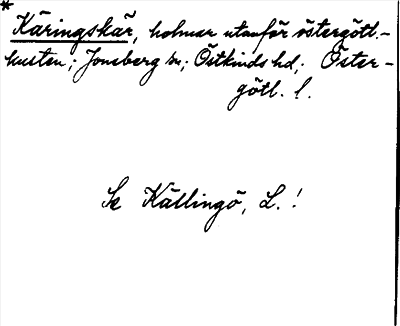 * Käringskär, holmar utanför östergötl.-
kusten; Jonsberg sn; Östkinds hd; Öster-
götl. l.
Se Källingö, L.!